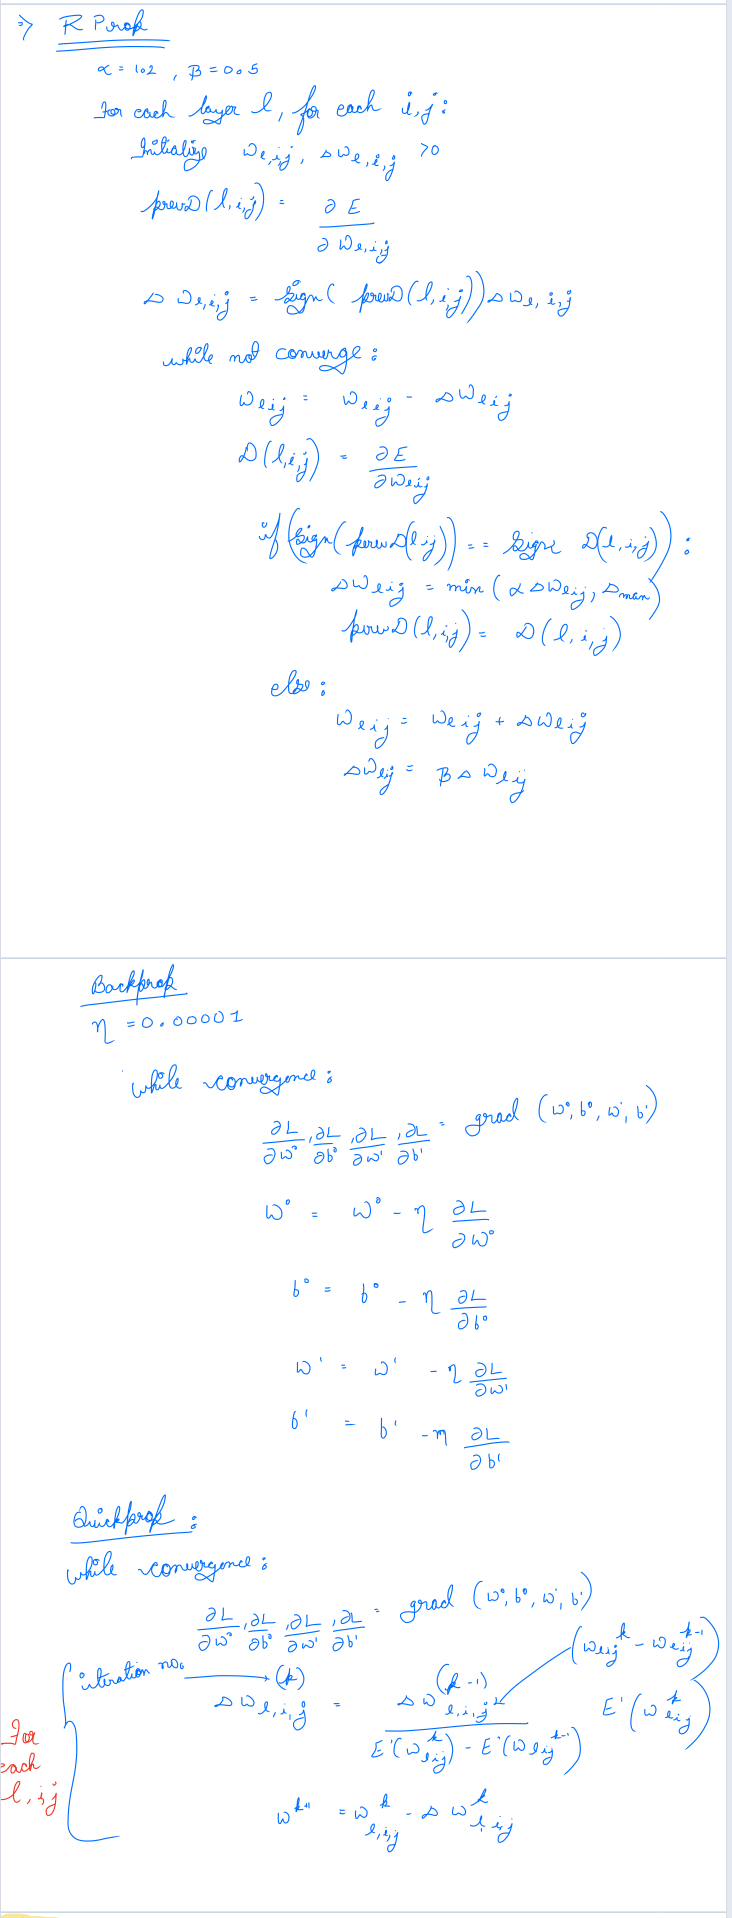 => R Prop
α = 1.2 , β = 0.5
For each layer l, for each i,j:
Initialize w_{l,i,j}, Δw_{l,i,j} >0
prevD(l,i,j) = ∂E / ∂w_{l,i,j}
Δw_{l,i,j} = sign( prevD(l,i,j)) Δw_{l,i,j}
while not converge:
w_{lij} = w_{lij} - Δw_{lij}
D(l,i,j) = ∂E / ∂w_{lij}
if (sign(prevD(lij)) == sign D(l,i,j)):
Δw_{lij} = min (αΔw_{lij}, Δ_{max})
prevD(l,i,j) = D(l,i,j)
else:
w_{lij} = w_{lij} + Δw_{lij}
Δw_{lij} = βΔw_{lij}
Backprop
η = 0.00001
while convergence:
∂L/∂w⁰, ∂L/∂b⁰, ∂L/∂w¹, ∂L/∂b¹ = grad (w⁰, b⁰, w¹, b¹)
w⁰ = w⁰ - η ∂L/∂w⁰
b⁰ = b⁰ - η ∂L/∂b⁰
w¹ = w¹ - η ∂L/∂w¹
b¹ = b¹ - η ∂L/∂b¹
Quickprop:
while convergence:
∂L/∂w⁰, ∂L/∂b⁰, ∂L/∂w¹, ∂L/∂b¹ = grad (w⁰, b⁰, w¹, b¹)
(w_{lij}^k - w_{lij}^{k-1})
iteration no. → (k)
Δw_{l,i,j} = Δw_{l,i,j}^{(k-1)} / E'(w_{lij}^k) - E'(w_{lij}^{k-1}) E'(w_{lij}^k)
For
each
l,ij
w^{k+1} = w_{l,i,j}^k - Δw_{l,ij}^k